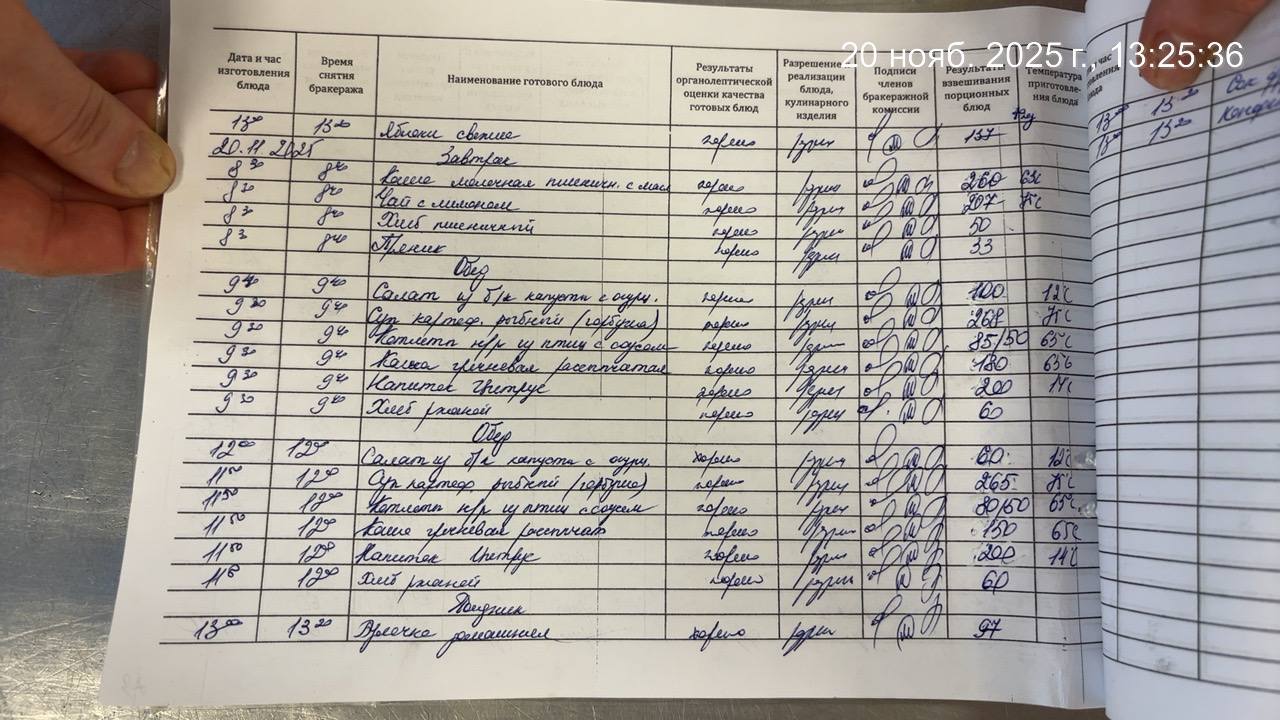 20 нояб. 2025 г., 13:25:36
Дата и час изготовления блюда | Время снятия бракеража | Наименование готового блюда | Результаты органолептической оценки качества готовых блюд | Разрешение к реализации блюда, кулинарного изделия | Подписи членов бракеражной комиссии | Результаты взвешивания порционных блюд | Температура приготовле-ния блюда
13 00 13 20 Яблоки свежие хорошо 137
20.11.2025 Завтрак
8 30 8 40 Каша молочная пшеничн. с масл хорошо 260 65с
8 30 8 40 Чай с лимоном хорошо 207 75с
8 3 8 40 Хлеб пшеничный хорошо 50
8 3 8 40 Пряник хорошо 33
Обед
9 30 9 40 Салат из б/к капусты с огурц. хорошо 100 12с
9 30 9 40 Суп картоф. рыбный (горбуша) хорошо 268 75с
9 30 9 40 Котлета н/р из птиц с соусом хорошо 85/50 65с
9 30 9 40 Каша гречневая рассыпчатая хорошо 180 65с
9 30 9 40 Напиток Цитрус хорошо 200 14с
9 30 9 40 Хлеб ржаной хорошо 60
Обед
12 00 12 00 Салат из б/к капусты с огурц. хорошо 60 12с
11 50 12 00 Суп картоф. рыбный (горбуша) хорошо 265 75с
11 50 12 00 Котлета н/р из птиц с соусом хорошо 80/50 65с
11 50 12 00 Каша гречневая рассыпчат хорошо 150 65с
11 50 12 00 Напиток Цитрус хорошо 200 14с
11 50 12 00 Хлеб ржаной хорошо 60
Полдник
13 00 13 20 Булочка домашняя хорошо 97
13 00 13 20 Сок
13 00 13 20